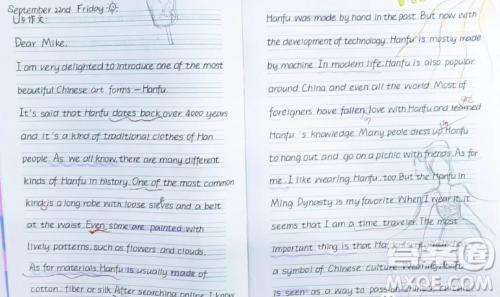 September 22nd Friday
U5作文:
Dear Mike,
I am very delighted to introduce one of the most
beautiful Chinese art forms — Hanfu.
It's said that Hanfu dates back over 4000 years
and it's a kind of traditional clothes of Han
people. As we all know, there are many different
kinds of Hanfu in history. One of the most common
kind is a long robe with loose slieves and a belt
at the waist. Even some are painted with
lively patterns, such as flowers and clouds.
As for materials, Hanfu is usually made of
cotton, fiber or silk. After searching online, I know
Hanfu was made by hand in the past. But now with
the development of technology, Hanfu is mostly made
by machine. In modern life, Hanfu is also popular
around China and even all the world. Most of
foreigners have fallen love with Hanfu and learned
Hanfu's knowledge. Many peole dress up Hanfu
to hang out and go on a picnic with friends. As for
me, I like wearing Hanfu, too. But the Hanfu in
Ming Dynasty is my favorite. When I wear it, it
seems that I am a time traveler. The most
important thing is that Hanfu
a symbol of Chinese culture. Wearing Hanfu
is seen as a way to pass